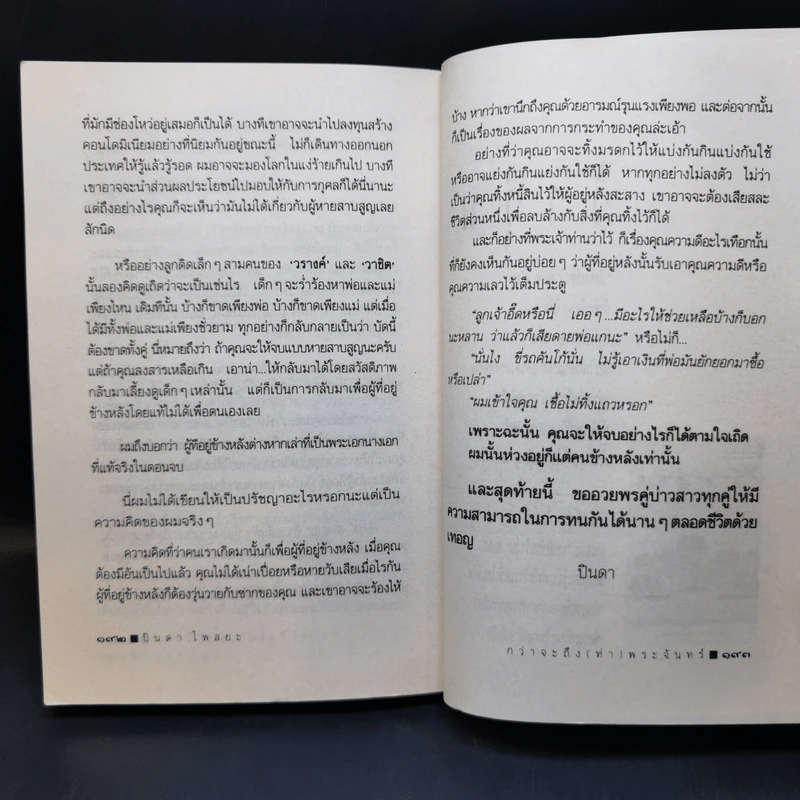 ที่มักมีช่องโหว่อยู่เสมอก็เป็นได้ บางทีเขาอาจจะนำไปลงทุนสร้าง
คอนโดมิเนียมอย่างที่นิยมกันอยู่ขณะนี้ ไม่ก็เดินทางออกนอก
ประเทศให้รู้แล้วรู้รอด ผมอาจจะมองโลกในแง่ร้ายเกินไป บางที
เขาอาจจะนำส่วนผลประโยชน์ไปมอบให้กับการกุศลก็ได้นี่นานะ
แต่ถึงอย่างไรคุณก็จะเห็นว่ามันไม่ได้เกี่ยวกับผู้หายสาบสูญเลย
สักนิด
หรืออย่างลูกติดเล็กๆ สามคนของ 'วรางค์' และ 'วาชิต'
นั้นลองคิดดูเถิดว่าจะเป็นเช่นไร เด็กๆ จะร่ำร้องหาพ่อและแม่
เพียงไหน เดิมทีนั้น บ้างก็ขาดเพียงพ่อ บ้างก็ขาดเพียงแม่ แต่เมื่อ
ได้มีทั้งพ่อและแม่เพียงชั่วยาม ทุกอย่างก็กลับกลายเป็นว่า บัดนี้
ต้องขาดทั้งคู่ นี่หมายถึงว่า ถ้าคุณจะให้จบแบบหายสาบสูญนะครับ
แต่ถ้าคุณสงสารเหลือเกิน เอาน่า...ให้กลับมาได้โดยสวัสดิภาพ
กลับมาเลี้ยงดูเด็กๆ เหล่านั้น แต่ก็เป็นการกลับมาเพื่อผู้ที่อยู่
ข้างหลังโดยแท้ไม่ได้เพื่อตนเองเลย
ผมถึงบอกว่า ผู้ที่อยู่ข้างหลังต่างหากเล่าที่เป็นพระเอกนางเอก
ที่แท้จริงในตอนจบ
นี่ผมไม่ได้เขียนให้เป็นปรัชญาอะไรหรอกนะแต่เป็น
ความคิดของผมจริงๆ
ความคิดที่ว่าคนเราเกิดมานั้นก็เพื่อผู้ที่อยู่ข้างหลัง เมื่อคุณ
ต้องมีอันเป็นไปแล้ว คุณไม่ได้เน่าเปื่อยหรือหายวับเสียเมื่อไรกัน
ผู้ที่อยู่ข้างหลังก็ต้องวุ่นวายกับซากของคุณ และเขาอาจจะร้องไห้
๑๙๒ ■ ปินดา โพสยะ
บ้าง หากว่าเขานึกถึงคุณด้วยอารมณ์รุนแรงเพียงพอ และต่อจากนั้น
ก็เป็นเรื่องของผลจากการกระทำของคุณล่ะเอ้า
อย่างที่ว่าคุณอาจจะทิ้งมรดกไว้ให้แบ่งกันกินแบ่งกันใช้
หรืออาจแย่งกันกินแย่งกันใช้ก็ได้ หากทุกอย่างไม่ลงตัว ไม่ว่า
เป็นว่าคุณทิ้งหนี้สินไว้ให้ผู้อยู่หลังสะสาง เขาอาจจะต้องเสียสละ
ชีวิตส่วนหนึ่งเพื่อลบล้างกับสิ่งที่คุณทิ้งไว้ก็ได้
และก็อย่างที่พระเจ้าท่านว่าไว้ ก็เรื่องคุณความดีอะไรเทือกนั้น
ที่ก็ยังคงเห็นกันอยู่บ่อยๆ ว่าผู้ที่อยู่หลังนั้นรับเอาคุณความดีหรือ
คุณความเลวไว้เต็มประตู
"ลูกเจ้าอี๊ดหรือนี่ เออๆ...มีอะไรให้ช่วยเหลือบ้างก็บอก
นะหลาน ว่าแล้วก็เสียดายพ่อแกนะ" หรือไม่ก็...
"นั่นไง ขี่รถคันโก้นั่น ไม่รู้เอาเงินที่พ่อมันยักยอกมาซื้อ
หรือเปล่า"
"ผมเข้าใจคุณ เชื้อไม่ทิ้งแถวหรอก"
เพราะฉะนั้น คุณจะให้จบอย่างไรก็ได้ตามใจเถิด
ผมนั้นห่วงอยู่ก็แต่คนข้างหลังเท่านั้น
และสุดท้ายนี้ ขออวยพรคู่บ่าวสาวทุกคู่ให้มี
ความสามารถในการทนกันได้นานๆ ตลอดชีวิตด้วย
เทอญ
ปินดา
กว่าจะถึง(ท่า)พระจันทร์ ■ ๑๙๓